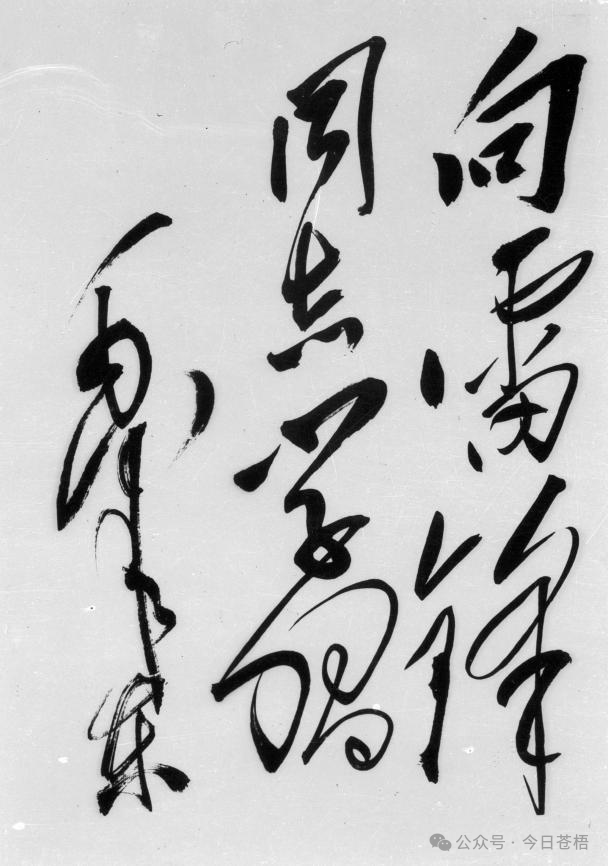 向雷锋
同志学习
毛泽东
公众号·今日苍梧